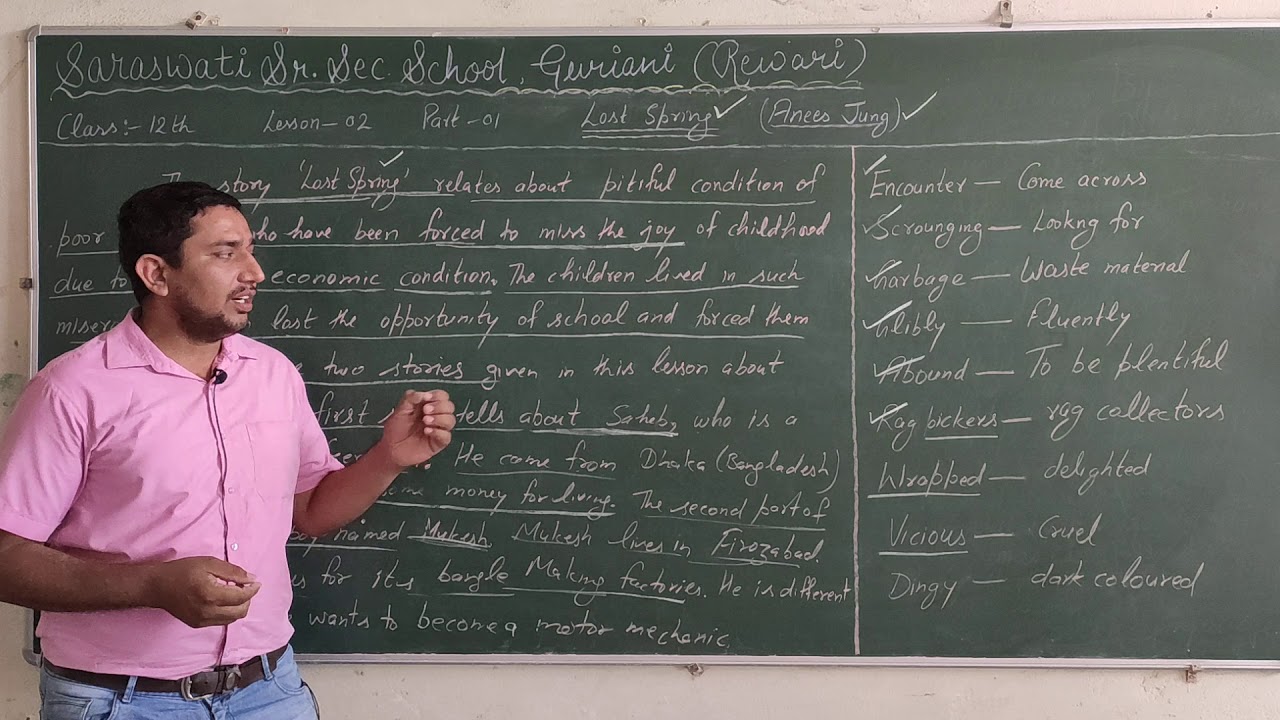 Saraswati Sr. Sec. School, Guriani (Rewari)
Class:- 12th Lesson - 02 Part - 01 Lost Spring (Anees Jung)
story 'Lost Spring' relates about pitiful condition of
poor who have been forced to miss the joy of childhood
due to economic condition. The children lived in such
last the opportunity of school and forced them
two stories given in this lesson about
first tells about Saheb, who is a
He come from Dhaka (Bangladesh)
money for living. The second part of
named Mukesh. Mukesh lives in Firozabad.
for its bangle Making factories. He is different
wants to become a motor mechanic.
Encounter — Come across
Scrounging — Lookng for
Garbage — Waste material
Glibly — Fluently
Abound — To be plentiful
Rag bickers — rag collectors
Wrapped — delighted
Vicious — Cruel
Dingy — dark coloured